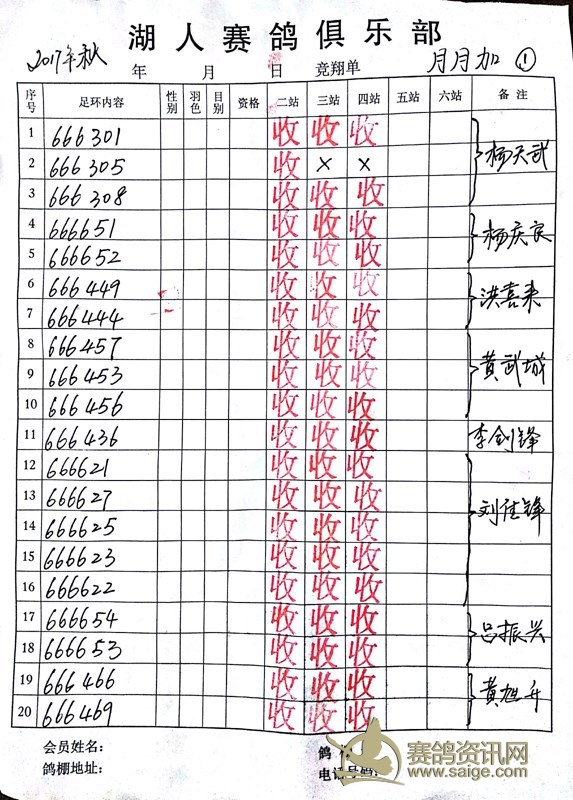 湖人赛鸽俱乐部
2017年秋 年 月 日 竞翔单 月月加 ①
序号 足环内容 性别 羽色 目别 资格 二站 三站 四站 五站 六站 备注
1 666301 收 收 收
2 666305 收 × × 杨天武
3 666308 收 收 收
4 666651 收 收 收 杨庆良
5 666652 收 收 收
6 666449 收 收 收 洪喜来
7 666444 收 收 收
8 666457 收 收 收
9 666453 收 收 收 黄武城
10 666456 收 收 收
11 666436 收 收 收 李剑锋
12 666621 收 收 收
13 666627 收 收 收 刘佳锋
14 666625 收 收 收
15 666623 收 收 收
16 666622 收 收 收
17 666654 收 收 收 吕振兴
18 666653 收 收 收
19 666466 收 收 收 黄旭升
20 666469 收 收 收
会员姓名: 鸽
鸽棚地址: 电话号码:
赛鸽资讯网
www.saige.com